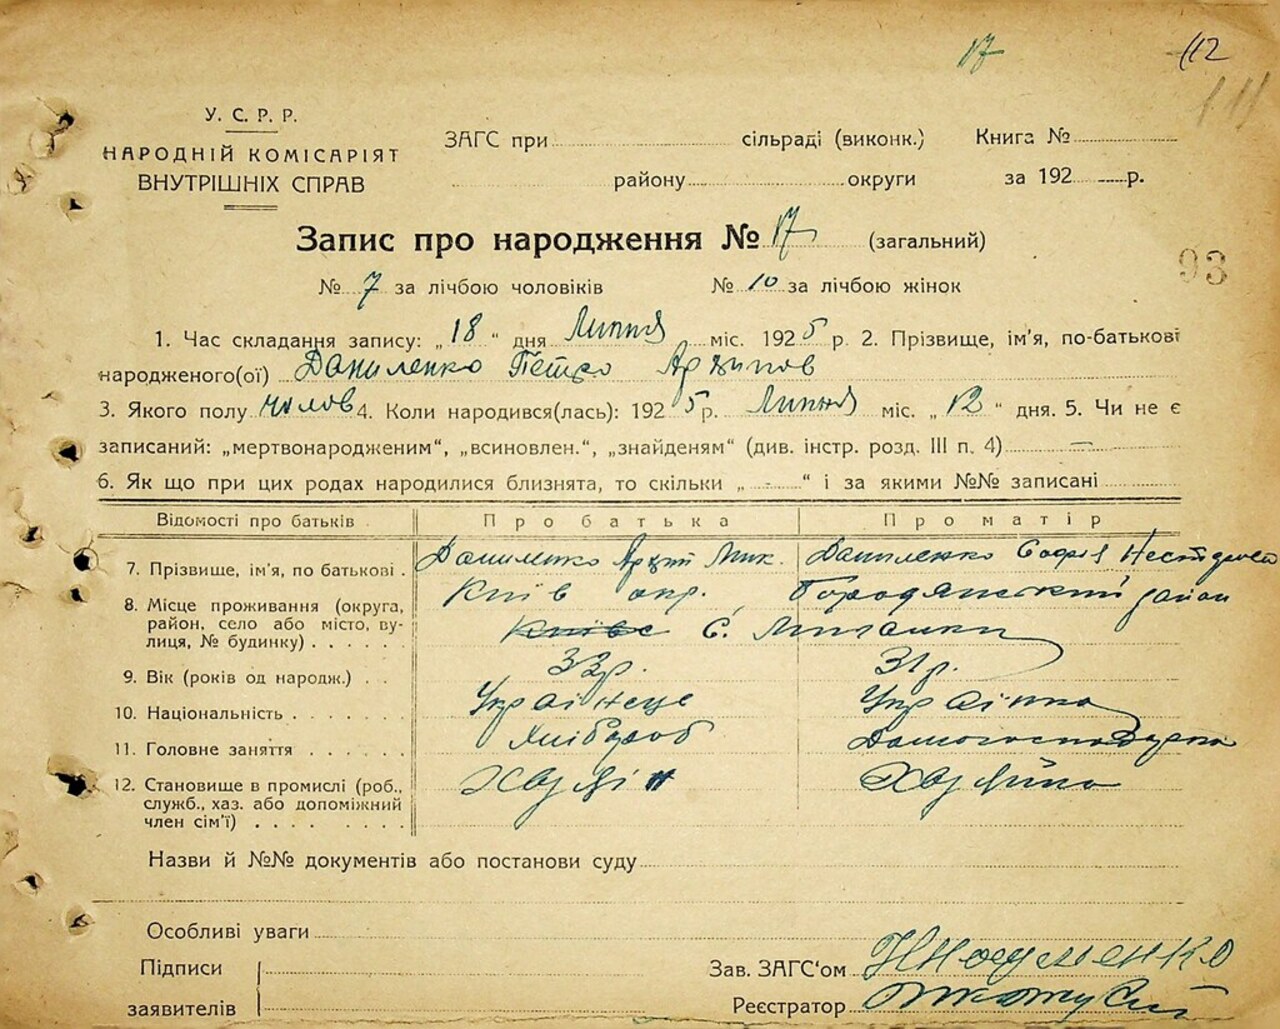 17 112
111
У. С. Р. Р.
НАРОДНІЙ КОМІСАРІЯТ
ВНУТРІШНІХ СПРАВ
ЗАГС при сільраді (виконк.) Книга №
району округи за 192 р.
Запис про народження № 17 (загальний)
93
№ 7 за лічбою чоловіків № 10 за лічбою жінок
1. Час складання запису: „ 18 “ дня Липня міс. 1925 р. 2. Прізвище, ім'я, по-батькові
народженого(ої) Даниленко Петро Архипов
3. Якого полу чолов 4. Коли народився(лась): 1925 р. Липня міс. „ 12 “ дня. 5. Чи не є
записаний: „мертвонародженим“, „всиновлен.“, „знайденям“ (див. інстр. розд. III п. 4) —
6. Як що при цих родах народилися близнята, то скільки „ - “ і за якими №№ записані
Відомості про батьків Про батька Про матір
7. Прізвище, ім'я, по батькові . Даниленко Архип Мик. Даниленко Софія
8. Місце проживання (округа, Київ окр. Бородянський район
район, село або місто, ву- С.
лиця, № будинку) . . . . . .
9. Вік (років од народж.) . . 33р. 31р.
10. Національність . . . . . . . Українець Українка
11. Головне заняття . . . . . . Хлібороб Домогосподарка
12. Становище в промислі (роб., Хазяїн Хазяйка
служб., хаз. або допоміжний
член сім'ї) . . . . . . . .
Назви й №№ документів або постанови суду
Особливі уваги
Підписи Зав. ЗАГС‘ом Науменко
заявителів Реєстратор